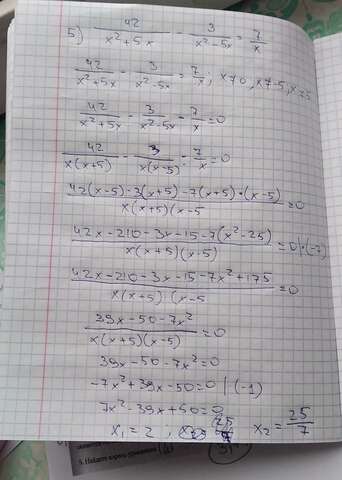 5) 42/(x²+5x) - 3/(x²-5x) = 7/x
42/(x²+5x) - 3/(x²-5x) = 7/x, x≠0, x≠-5, x≠5
42/(x²+5x) - 3/(x²-5x) - 7/x = 0
42/(x(x+5)) - 3/(x(x-5)) - 7/x = 0
(42(x-5)-3(x+5)-7(x+5)·(x-5))/(x(x+5)(x-5) = 0
(42x-210-3x-15-7(x²-25))/(x(x+5)(x-5)) = 0 |·(-7)
(42x-210-3x-15-7x²+175)/(x(x+5)(x-5) = 0
(39x-50-7x²)/(x(x+5)(x-5)) = 0
39x-50-7x²=0
-7x²+39x-50=0 | (-1)
7x²-39x+50=0
x₁=2 x₂=25/7